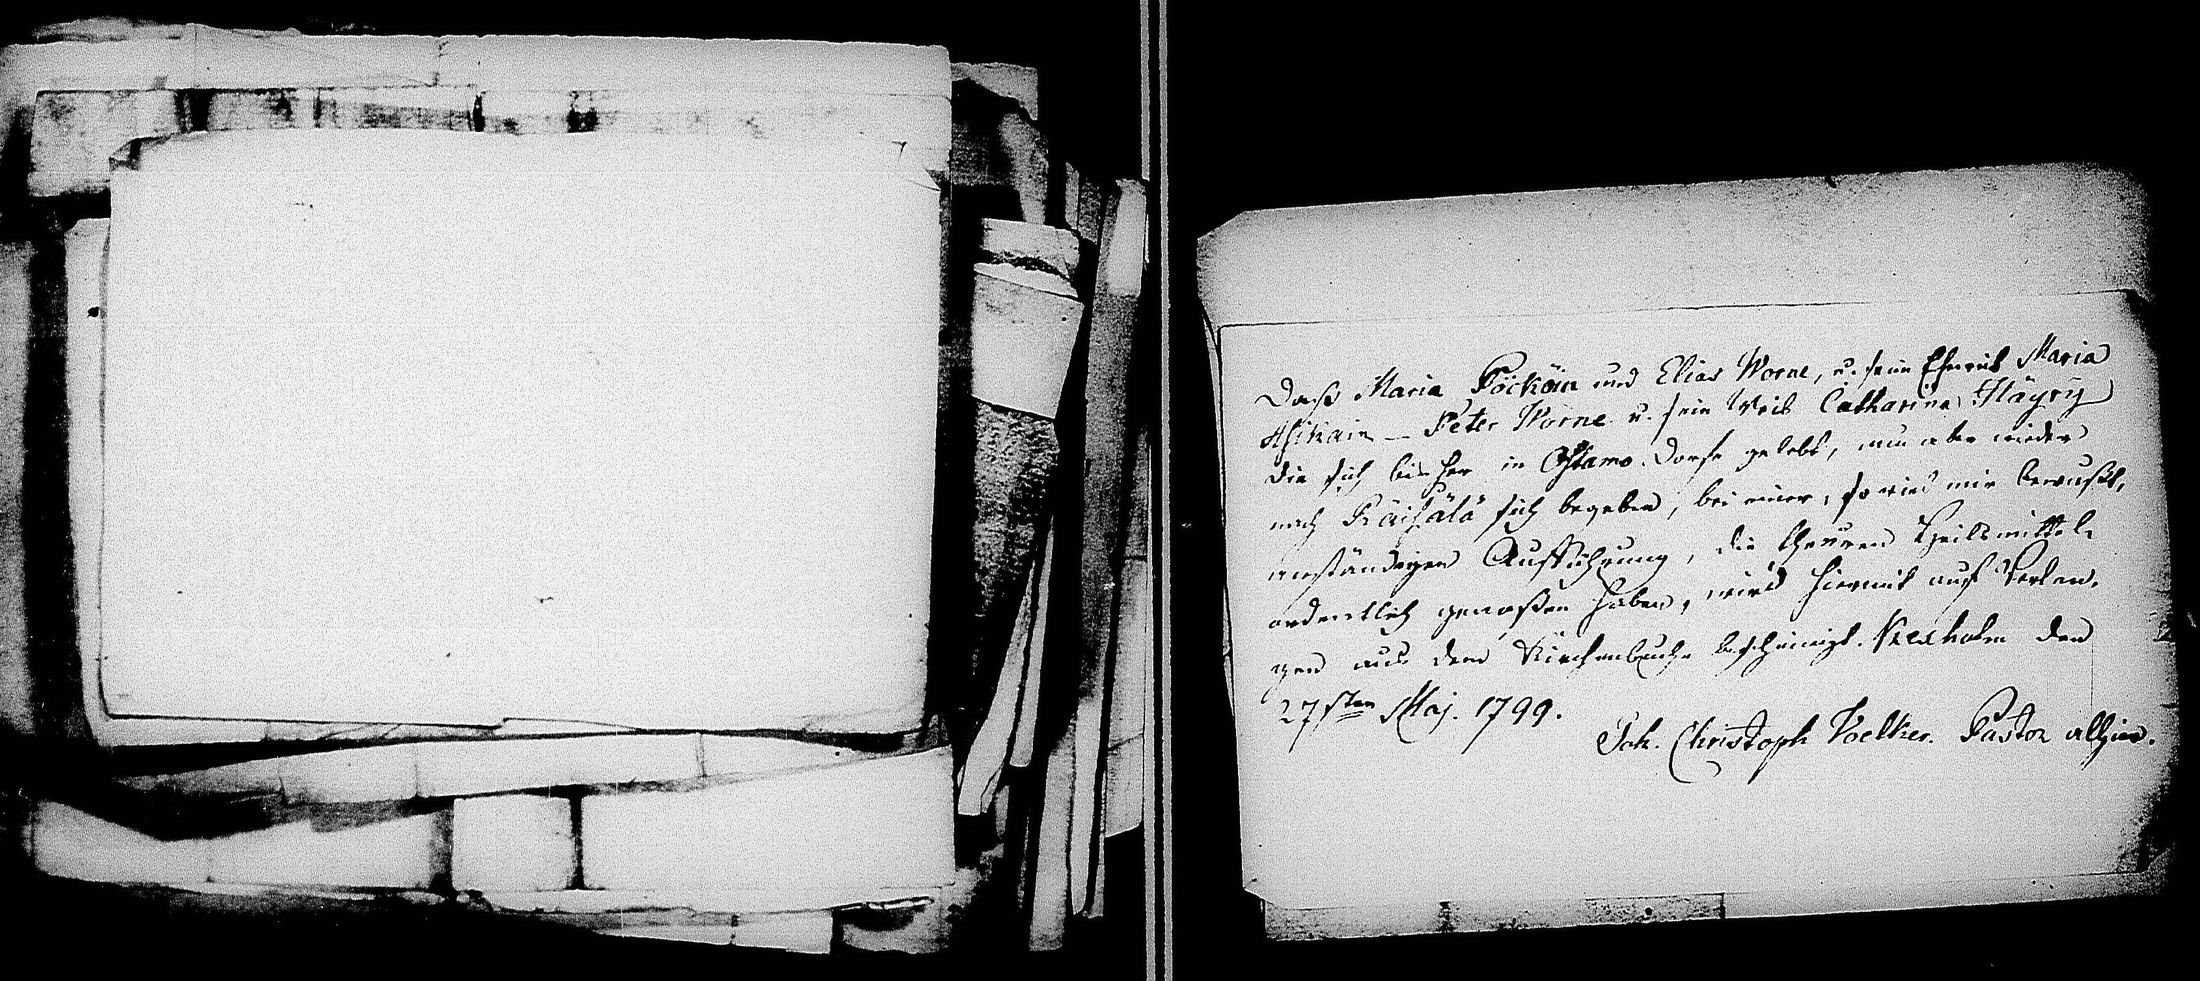 Daß Maria Pöcköin und Elias Worne, u. sein Eheweib Maria
Asikain — Peter Worne u. sein Weib Catharina Häyry
die sich bisher in Ostamo. Dorfe gelebt, nun aber wieder
nach Räisälä sich begeben, bei einer, so viel mir bewußt,
anständigen Aufführung, die theuren Heilsmittel
ordentlich genoßen haben, wird hiermit auf Verlan-
gen aus dem Kirchenbuche bescheinigt. Kexholm den
27sten Maj. 1799.
Joh. Christoph Voelker. Pastor allhier.